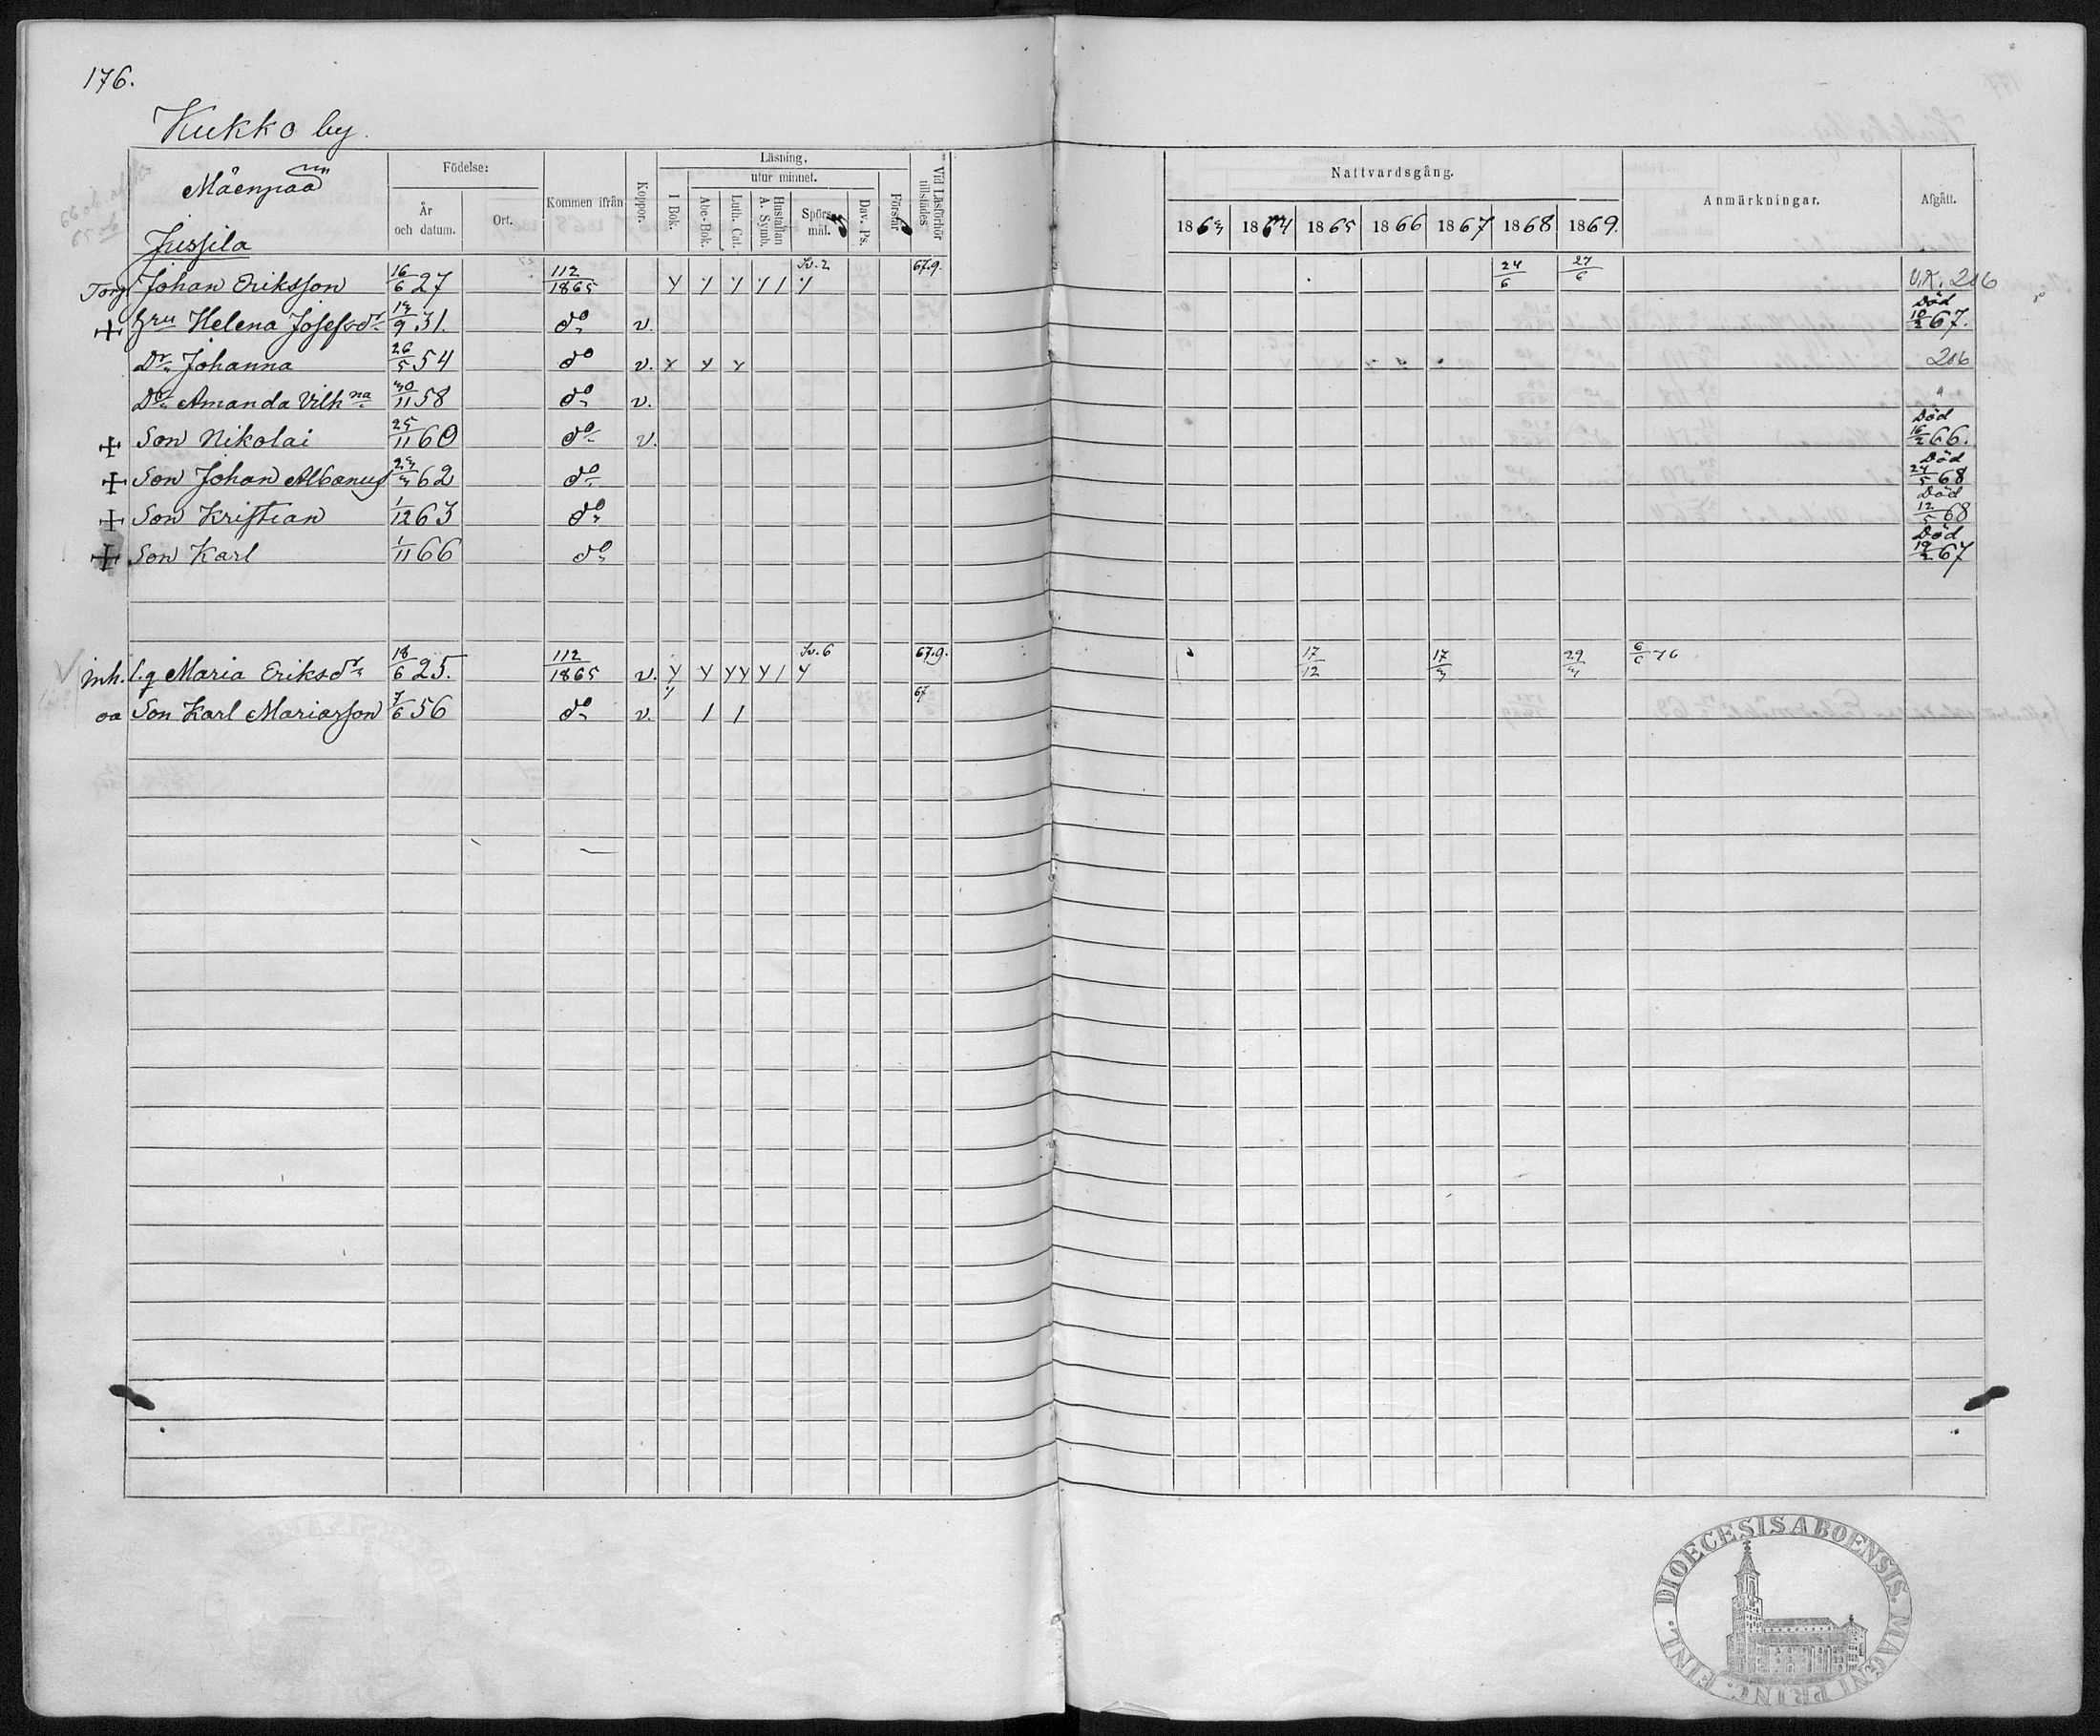 176.
Kukko by.
Mäenpää
Jussila
Födelse:
År och datum.
Ort.
Kommen ifrån
Koppor.
Läsning.
I Bok.
utur minnet.
Abc-Bok.
Luth. Cat.
Hustaflan A. Symb.
Spörsmål.
Dav. Ps.
Förstår
Vid Läsförhör tillstädes
Nattvardsgång.
1863 1864 1865 1866 1867 1868 1869.
Anmärkningar.
Afgått.
Torp. Johan Eriksson 16/6 27 112/1865 Sv. 2 67.9. 24/6 27/6 206
+ Hru Helena Josefsdr 13/9 31. do v. Död 10/2 67.
Dr Johanna 26/5 54 do v. 206
Dr Amanda Vilhna 30/11 58 do v. "
+ Son Nikolai 25/11 60 do v. Död 16/2 66.
+ Son Johan Albanus 23/3 62 do Död 24/5 68
+ Son Kristian 1/12 63 do Död 12/5 68
+ Son Karl 1/11 66 do Död 19/2 67
Inh. Maria Eriksdr 18/6 25. 112/1865 v. Sv. 6 67.9. 17/12 17/3 29/3 6/6 76
oä Son Karl Mariasson 7/6 56 do v. 67
DIOECESIS ABOENSIS. MAGNI PRINC. FINL.